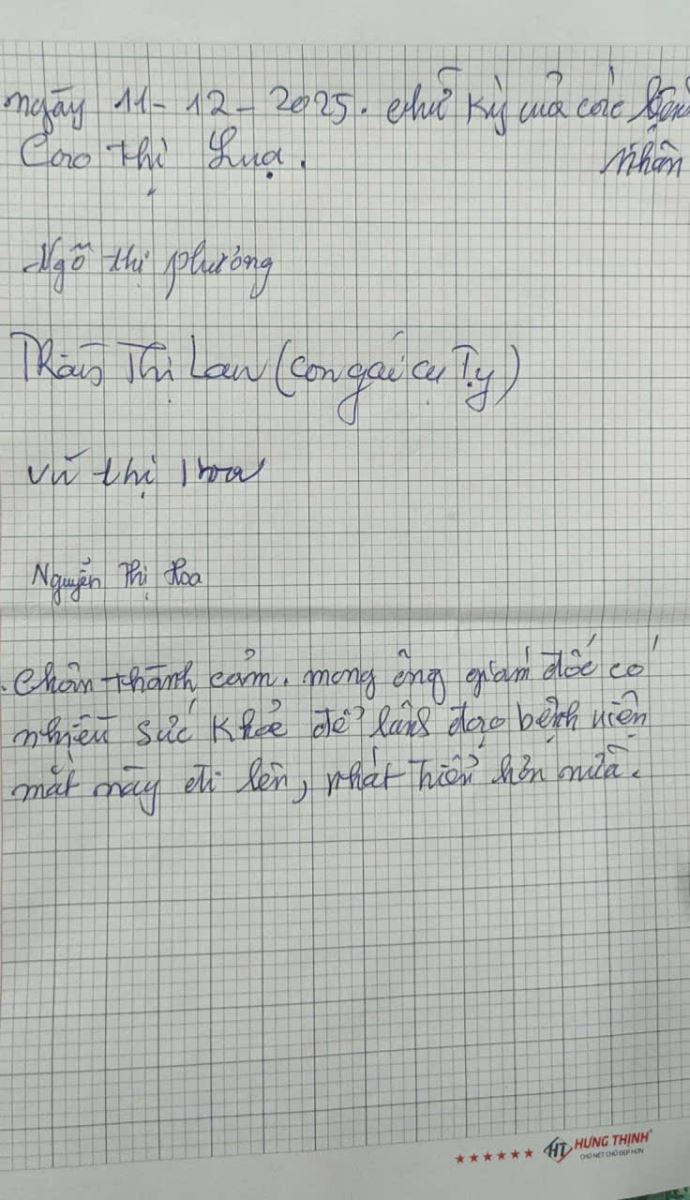 ngày 11-12-2025. chữ ký của các bệnh
nhân
Cao thị Lụa.
Ngô thị phương
Trần Thị Lan (con gái cụ Tỵ)
Vũ thị
Nguyễn Thị Hoa
. Chân thành cảm. mong ông giám đốc có
nhiều sức khỏe để lãnh đạo bệnh viện
mắt này đi lên, phát triển hơn nữa.
★★★★★★ HT HƯNG THỊNH
CHO NÉT CHỮ ĐẸP HƠN